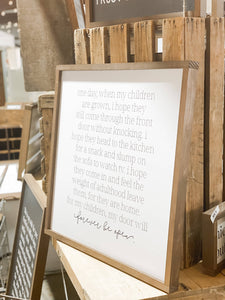 TRUST
one day, when my children
are grown, i hope they
still come through the front
door without knocking. i
hope they head to the kitchen
for a snack and slump on
the sofa to watch tv. i hope
they come in and feel the
weight of adulthood leave
them, for they are home.
for my children, my door will
forever be open.